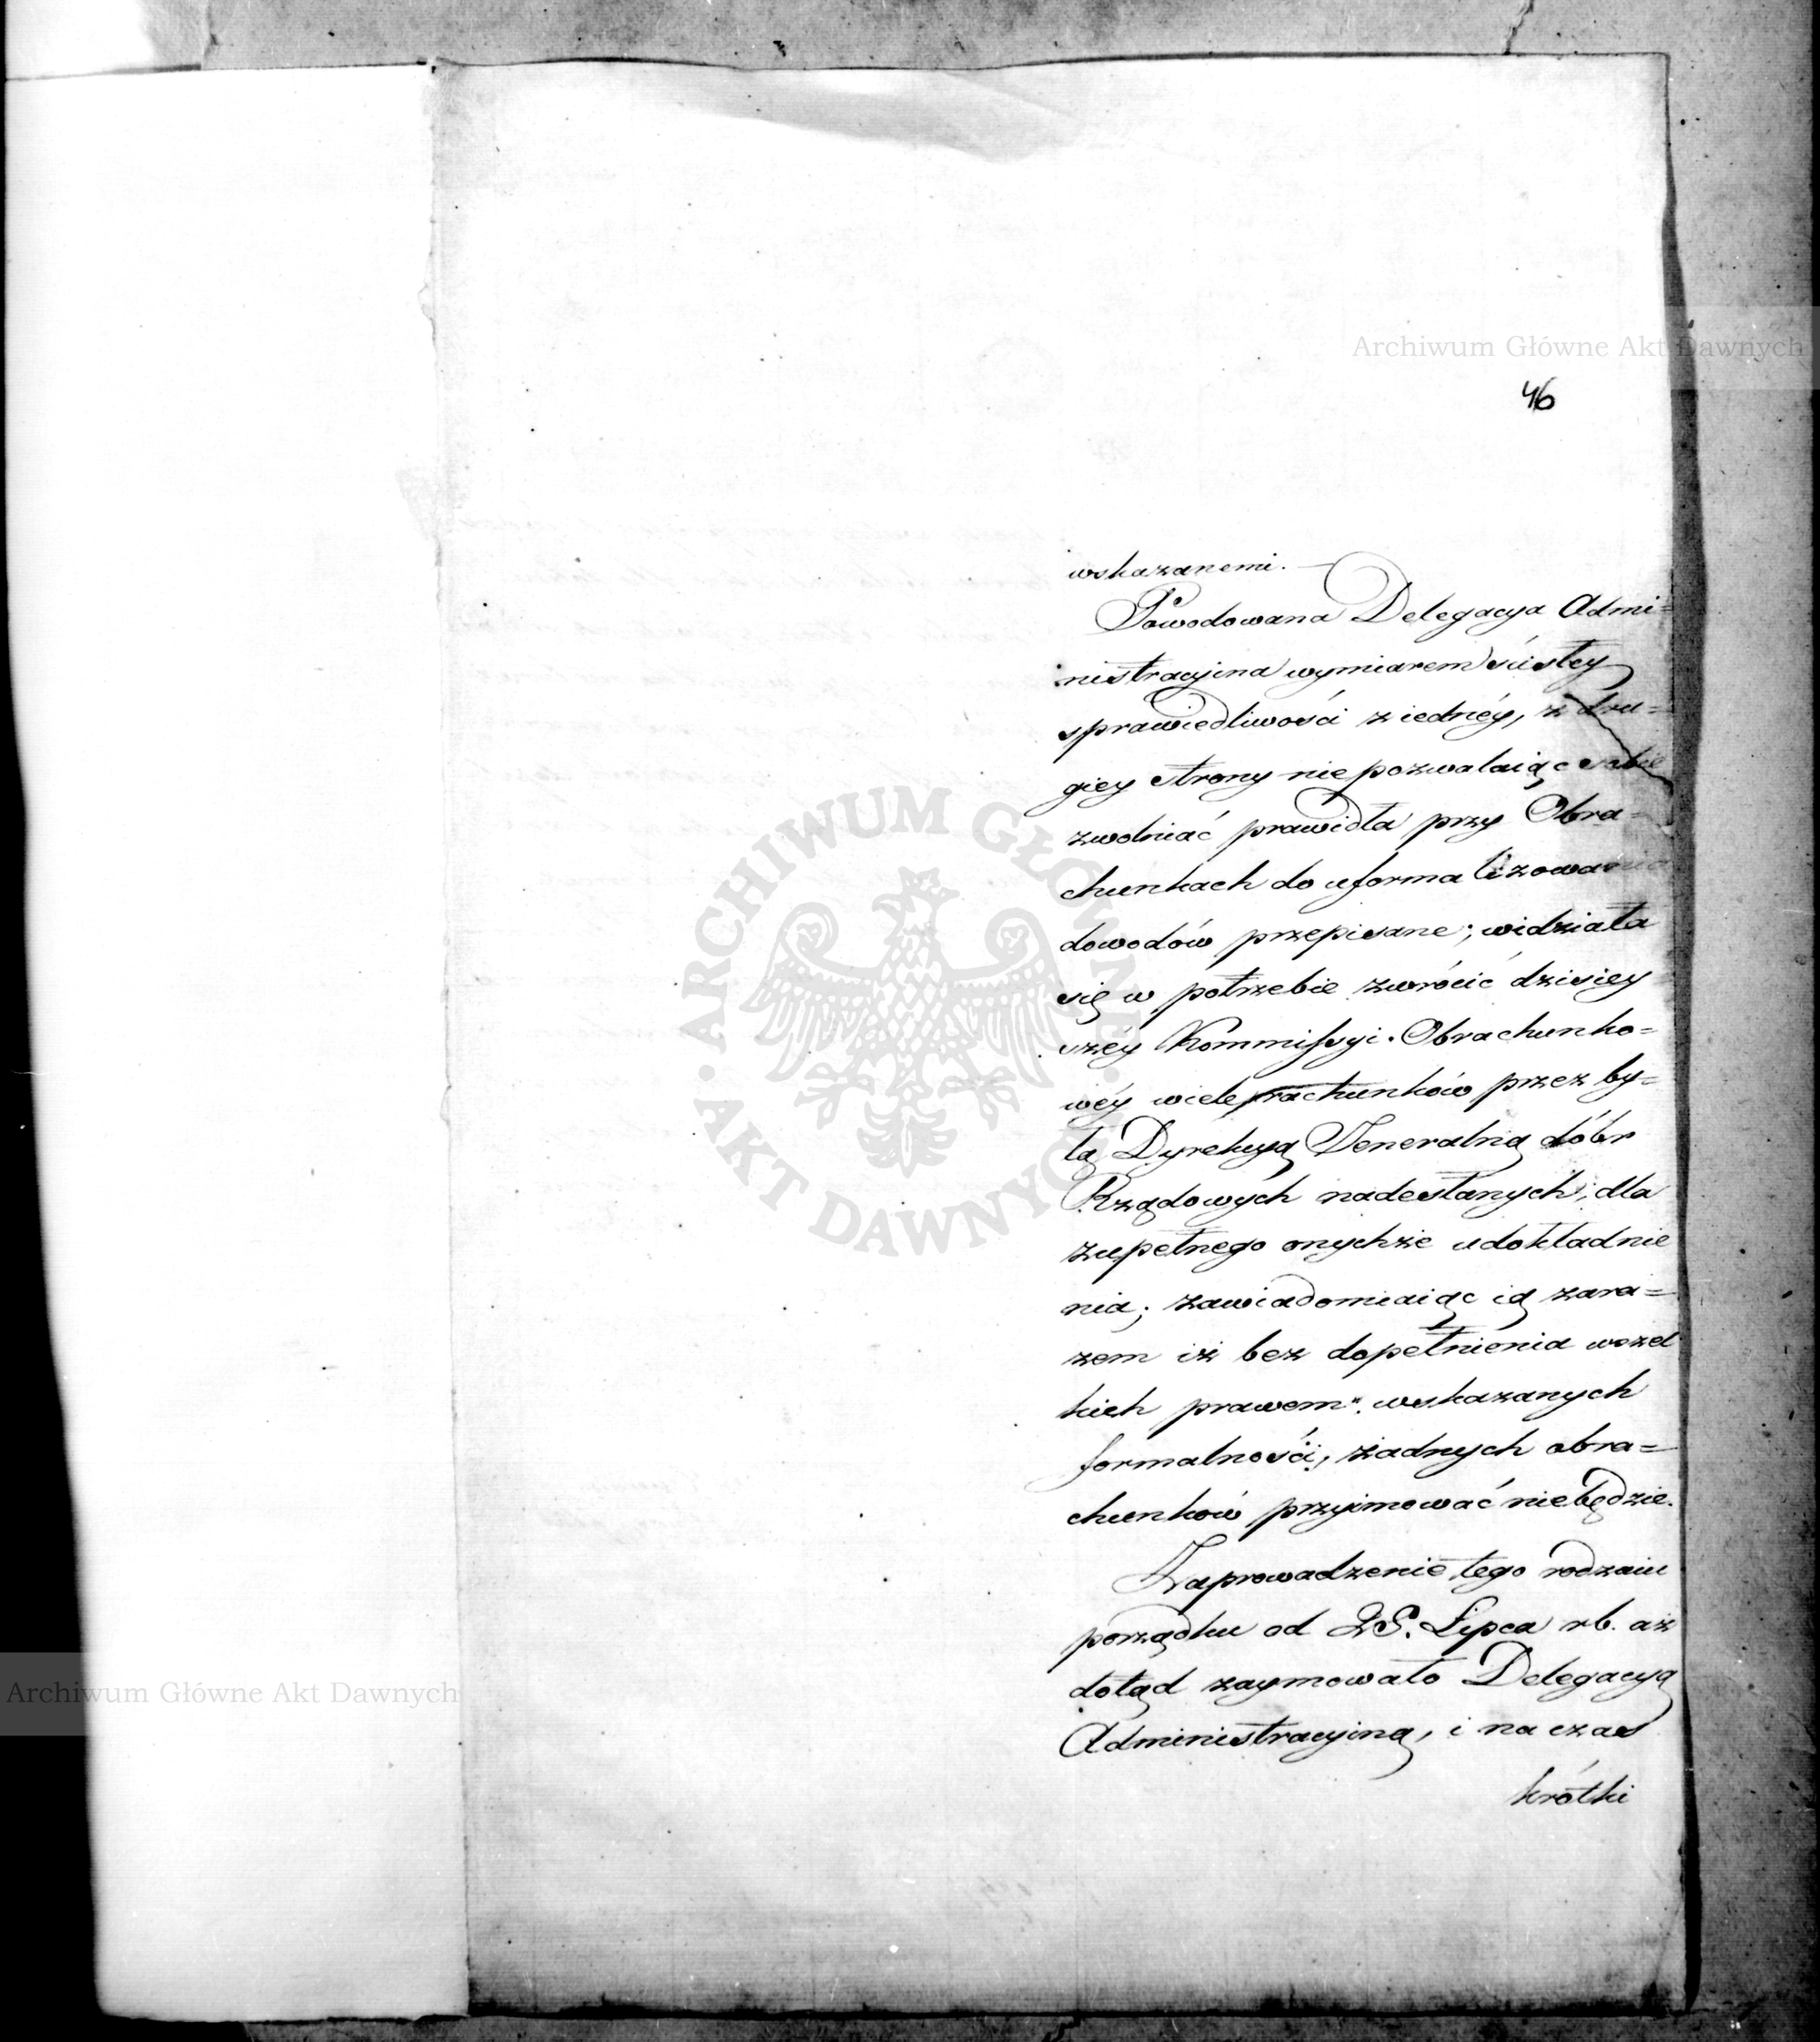 Archiwum Główne Akt Dawnych
46
wskazanemi. —
Powodowana Delegacya Admi=
nistracyina wymiarem ścisłey
sprawiedliwości z iednéy, z dru=
giey strony nie pozwalaiąc sobie
zwolniać prawidła przy Obra=
chunkach do uformalizowania
dowodów przepisane; widziała
się w potrzebie zwrócić dzisiey
széy Kommissyi Obrachunko=
wéy wiele rachunków przez by=
łą Dyrekcyą Jeneralną dóbr
Rządowych nadesłanych, dla
zupełnego onychże udokładnie
nia; zawiadomiaiąc ią zara=
zem iż bez dopełnienia wszel
kich prawem wskazanych
formalności, żadnych obra=
chunków przyimować niebędzie.
Zaprowadzenie tego rodzaiu
porządku od Lipca rb. aż
dotąd zaymowało Delegacyą
Administracyiną, i na czas
krótki
ARCHIWUM GŁÓWNE
AKT DAWNYCH
Archiwum Główne Akt Dawnych